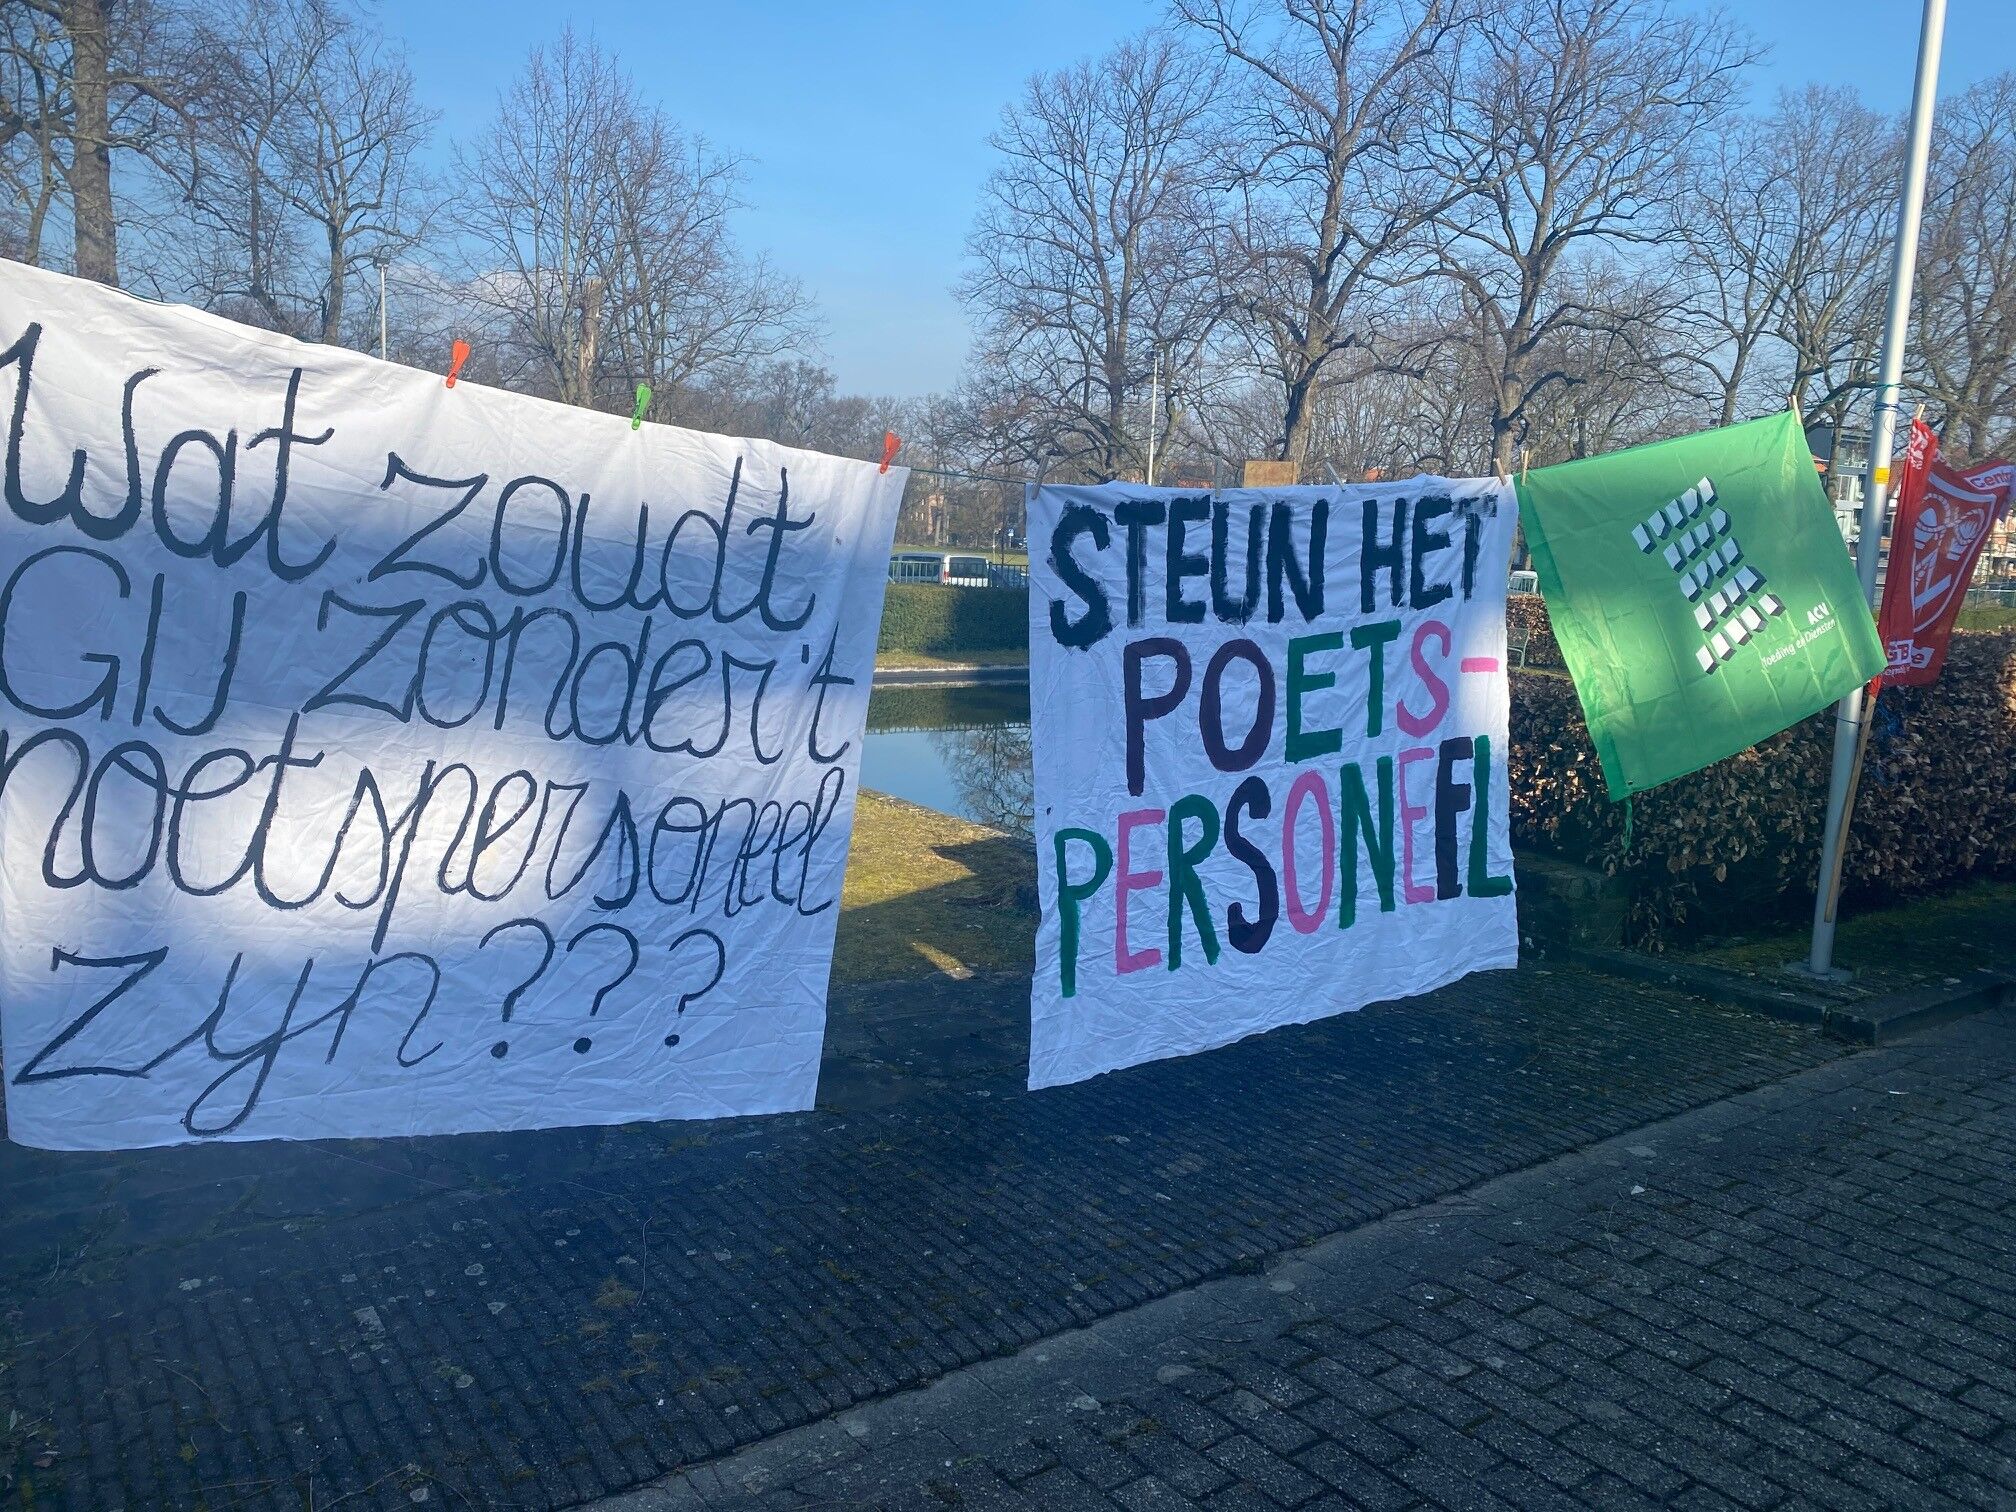 Wat zoudt
GIJ zonder't
poetspersoneel
zyn???
STEUN HET
POETS-
PERSONEEL
ACV
Voeding en Diensten
Centr